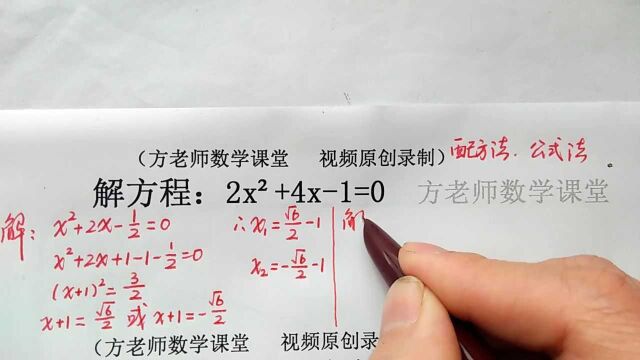 （方老师数学课堂 视频原创录制）配方法、公式法
解方程：2x²+4x-1=0 方老师数学课堂
解：x²+2x-1/2=0
x²+2x+1-1-1/2=0
(x+1)²=3/2
x+1=√6/2 或 x+1=-√6/2
∴x₁=√6/2-1
x₂=-√6/2-1
解
（方老师数学课堂 视频原创录